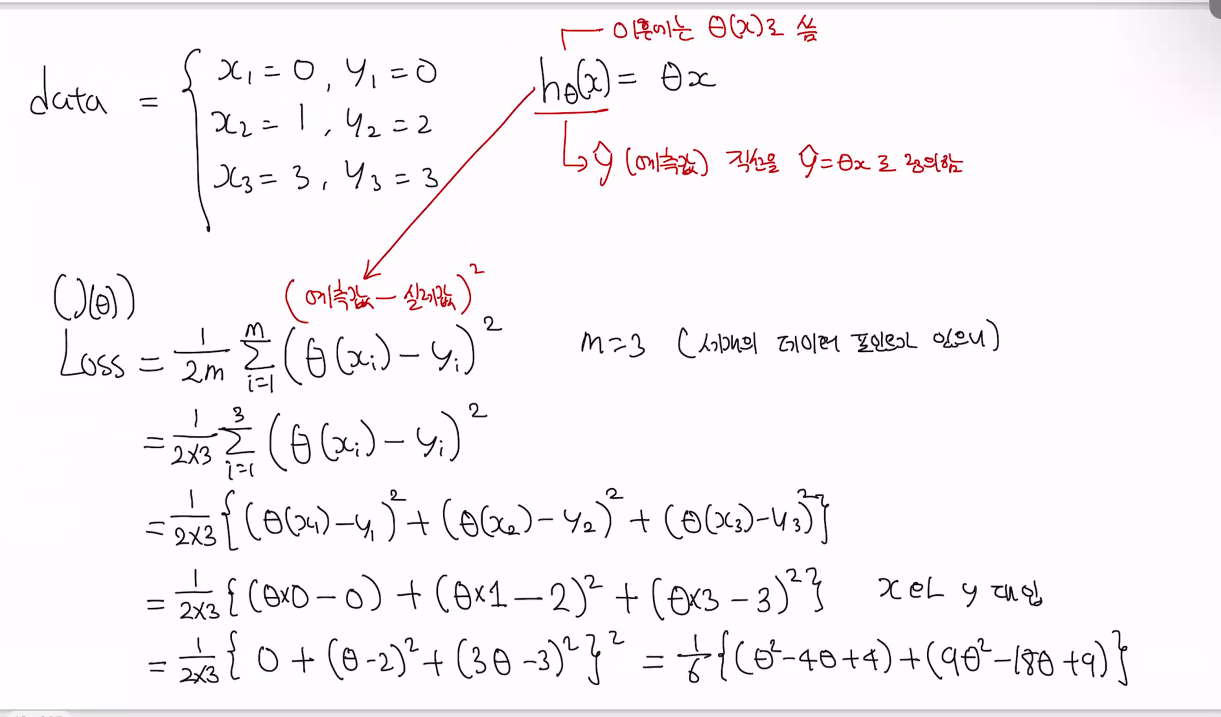 이후에는 θ(x)로 씀
data = { x₁ = 0, y₁ = 0
x₂ = 1, y₂ = 2
x₃ = 3, y₃ = 3
h_θ(x) = θx
ŷ (예측값) 직선을 ŷ=θx로 정의함
(J(θ))
(예측값 - 실제값)²
Loss = 1/2m Σ_{i=1}^{m} (θ(xᵢ) - yᵢ)² m=3 (세개의 데이터 포인트가 있으니)
= 1/2×3 Σ_{i=1}^{3} (θ(xᵢ) - yᵢ)²
= 1/2×3 {(θ(x₁) - y₁)² + (θ(x₂) - y₂)² + (θ(x₃) - y₃)²}
= 1/2×3 {(θ×0 - 0) + (θ×1 - 2)² + (θ×3 - 3)²} x에 y 대입
= 1/2×3 {0 + (θ-2)² + (3θ-3)²}² = 1/6 {(θ²-4θ+4) + (9θ²-18θ+9)}